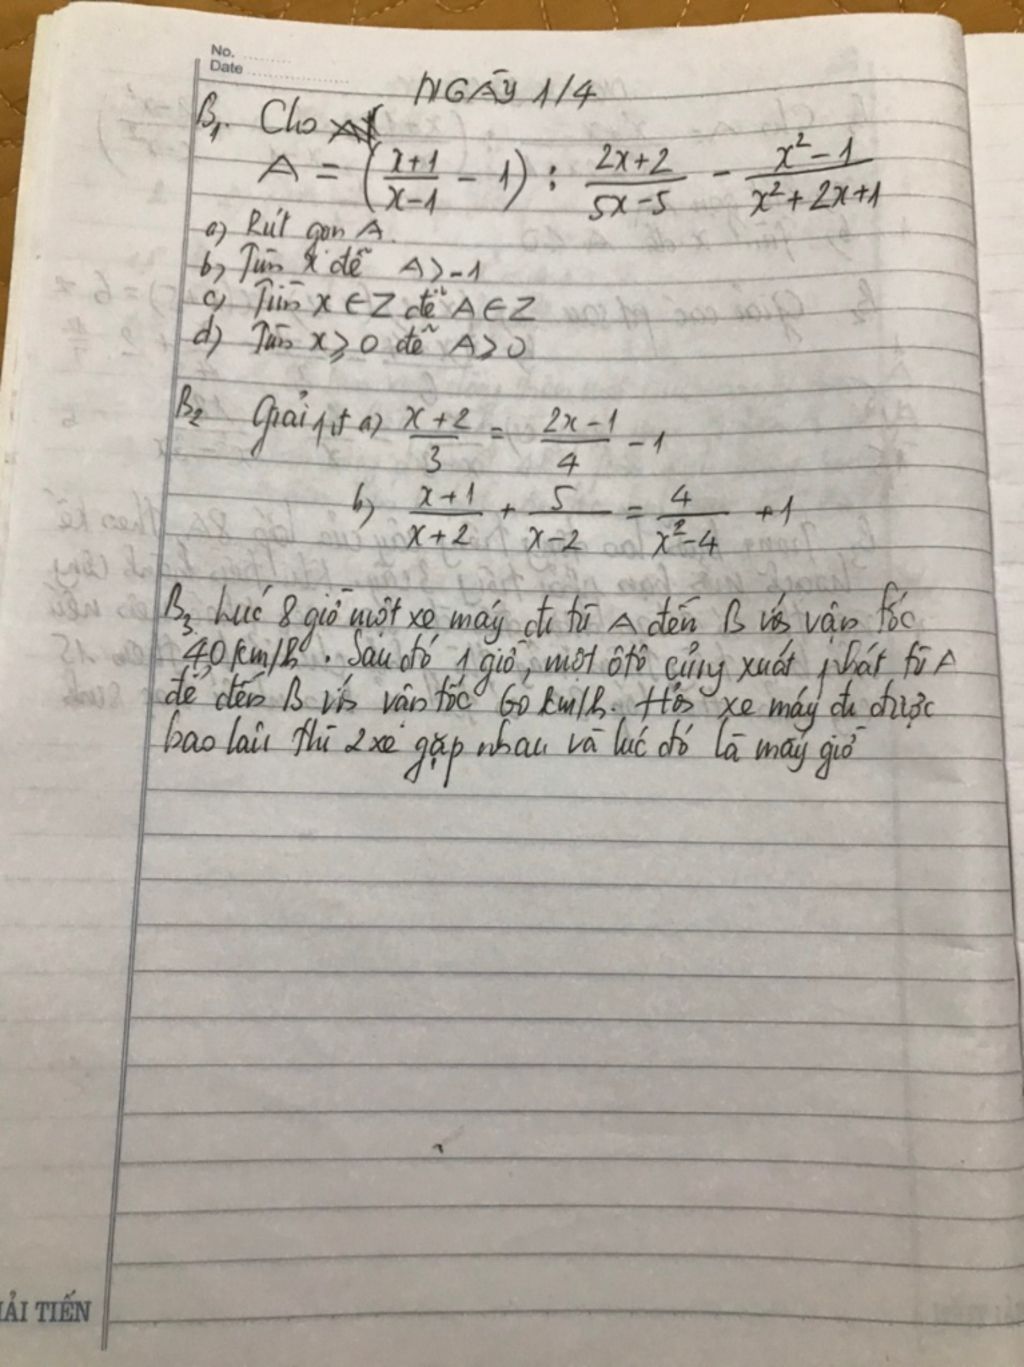 No.
Date
NGÀY 1/4
B1. Cho
A = (x+1/x-1 - 1) : 2x+2/5x-5 - x²-1/x²+2x+1
a) Rút gọn A.
b) Tìm x để A > -1
c) Tìm x ∈ Z để A ∈ Z
d) Tìm x ⩾ 0 để A > 0
B2 Giải pt a) x+2/3 = 2x-1/4 - 1
b) x+1/x+2 + 5/x-2 = 4/x²-4 + 1
B3. Lúc 8 giờ một xe máy đi từ A đến B với vận tốc
40 km/h. Sau đó 1 giờ, một ôtô cũng xuất phát từ A
để đến B với vận tốc 60 km/h. Hỏi xe máy đi được
bao lâu thì 2 xe gặp nhau và lúc đó là mấy giờ
ẢI TIẾN